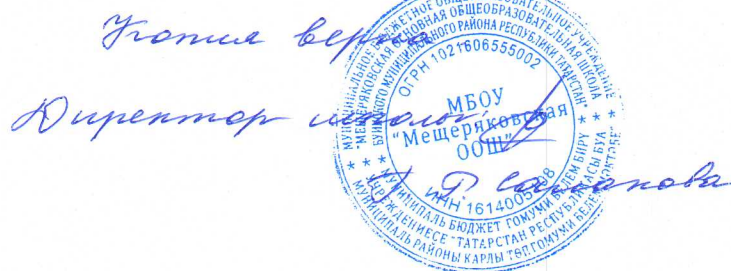 Копия верна
Директор школы
МУНИЦИПАЛЬНОЕ БЮДЖЕТНОЕ ОБЩЕОБРАЗОВАТЕЛЬНОЕ УЧРЕЖДЕНИЕ
"МЕЩЕРЯКОВСКАЯ ОСНОВНАЯ ОБЩЕОБРАЗОВАТЕЛЬНАЯ ШКОЛА
БУИНСКОГО МУНИЦИПАЛЬНОГО РАЙОНА РЕСПУБЛИКИ ТАТАРСТАН"
ОГРН 1021606555002
МБОУ
"Мещеряковская
ООШ"
ИНН 1614005
МУНИЦИПАЛЬ БЮДЖЕТ ГОМУМИ БЕЛЕМ БИРҮ
УЧРЕЖДЕНИЕСЕ "ТАТАРСТАН РЕСПУБЛИКАСЫ БУА
МУНИЦИПАЛЬ РАЙОНЫ КАРЛЫ ТӨП ГОМУМИ БЕЛЕМ МӘКТӘБЕ"